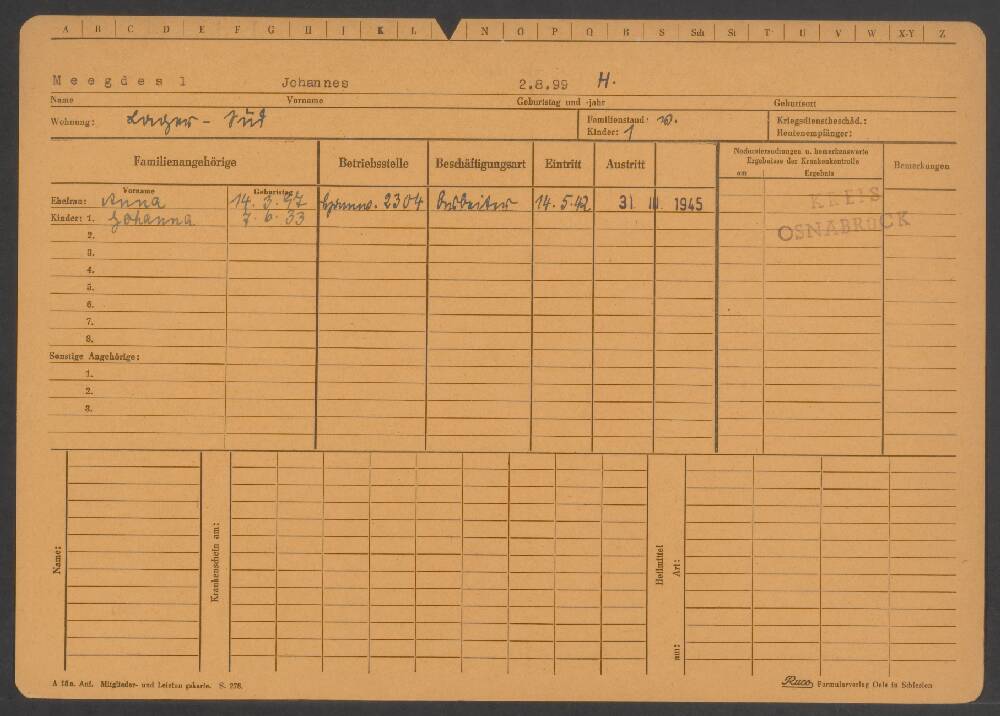 A B C D E F G H I K L N O P Q R S Sch St T U V W X-Y Z
Meegdes 1 Johannes 2.8.99 H.
Name Vorname Geburtstag und -jahr Geburtsort
Wohnung: Lager - Süd Familienstand: w. Kriegsdienstbeschäd.:
Kinder: 1 Rentenempfänger:
Familienangehörige Betriebsstelle Beschäftigungsart Eintritt Austritt Nachuntersuchungen u. bemerkenswerte Ergebnisse der Krankenkontrolle Bemerkungen
am Ergebnis
Vorname Geburtstag
Ehefrau: Anna 14.3.97 2304 Arbeiter 14.5.42 31 III 1945 KREIS
Kinder: 1. Johanna 7.6.33 OSNABRÜCK
2.
3.
4.
5.
6.
7.
8.
Sonstige Angehörige:
1.
2.
3.
Name:
Krankenschein am:
Heilmittel
Art:
am:
A 18a. Anf. Mitglieder- und Leistungskarte. S. 278.
Ruco Formularverlag Oels in Schlesien